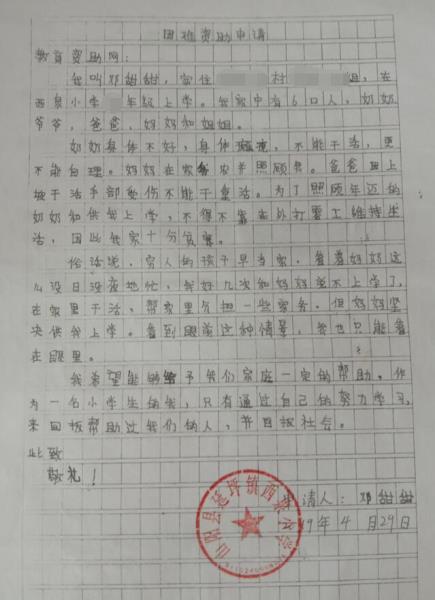 困难资助申请
教育资助网:
我叫邓甜甜,家住 村 组,在
西泉小学 年级上学。我家中有6口人,奶奶
爷爷,爸爸,妈妈和姐姐。
奶奶身体不好,身体 ,不能干活,更
不能自理。妈妈在家务农并照顾 。爸爸 上
坡干活手部受伤不能干重活。为了照顾年迈的
奶奶和供我上学,不得不靠在外打零工维持生
活,因此我家十分贫寒。
俗话说,穷人的孩子早当家。看着妈妈这
么没日没夜地忙,我好几次和妈妈说不上学了,
在家里干活,帮家里分担一些家务。但妈妈坚
决供我上学。看到眼前这种情景,我也只能看
在眼里。
我希望能够给予我们家庭一定的帮助。作
为一名小学生的我,只有通过自己的努力学习,
来回报帮助过我们的人,并回报社会。
此致
敬礼!
申请人:邓甜甜
19年4月29日
山阳县延坪镇西泉小学